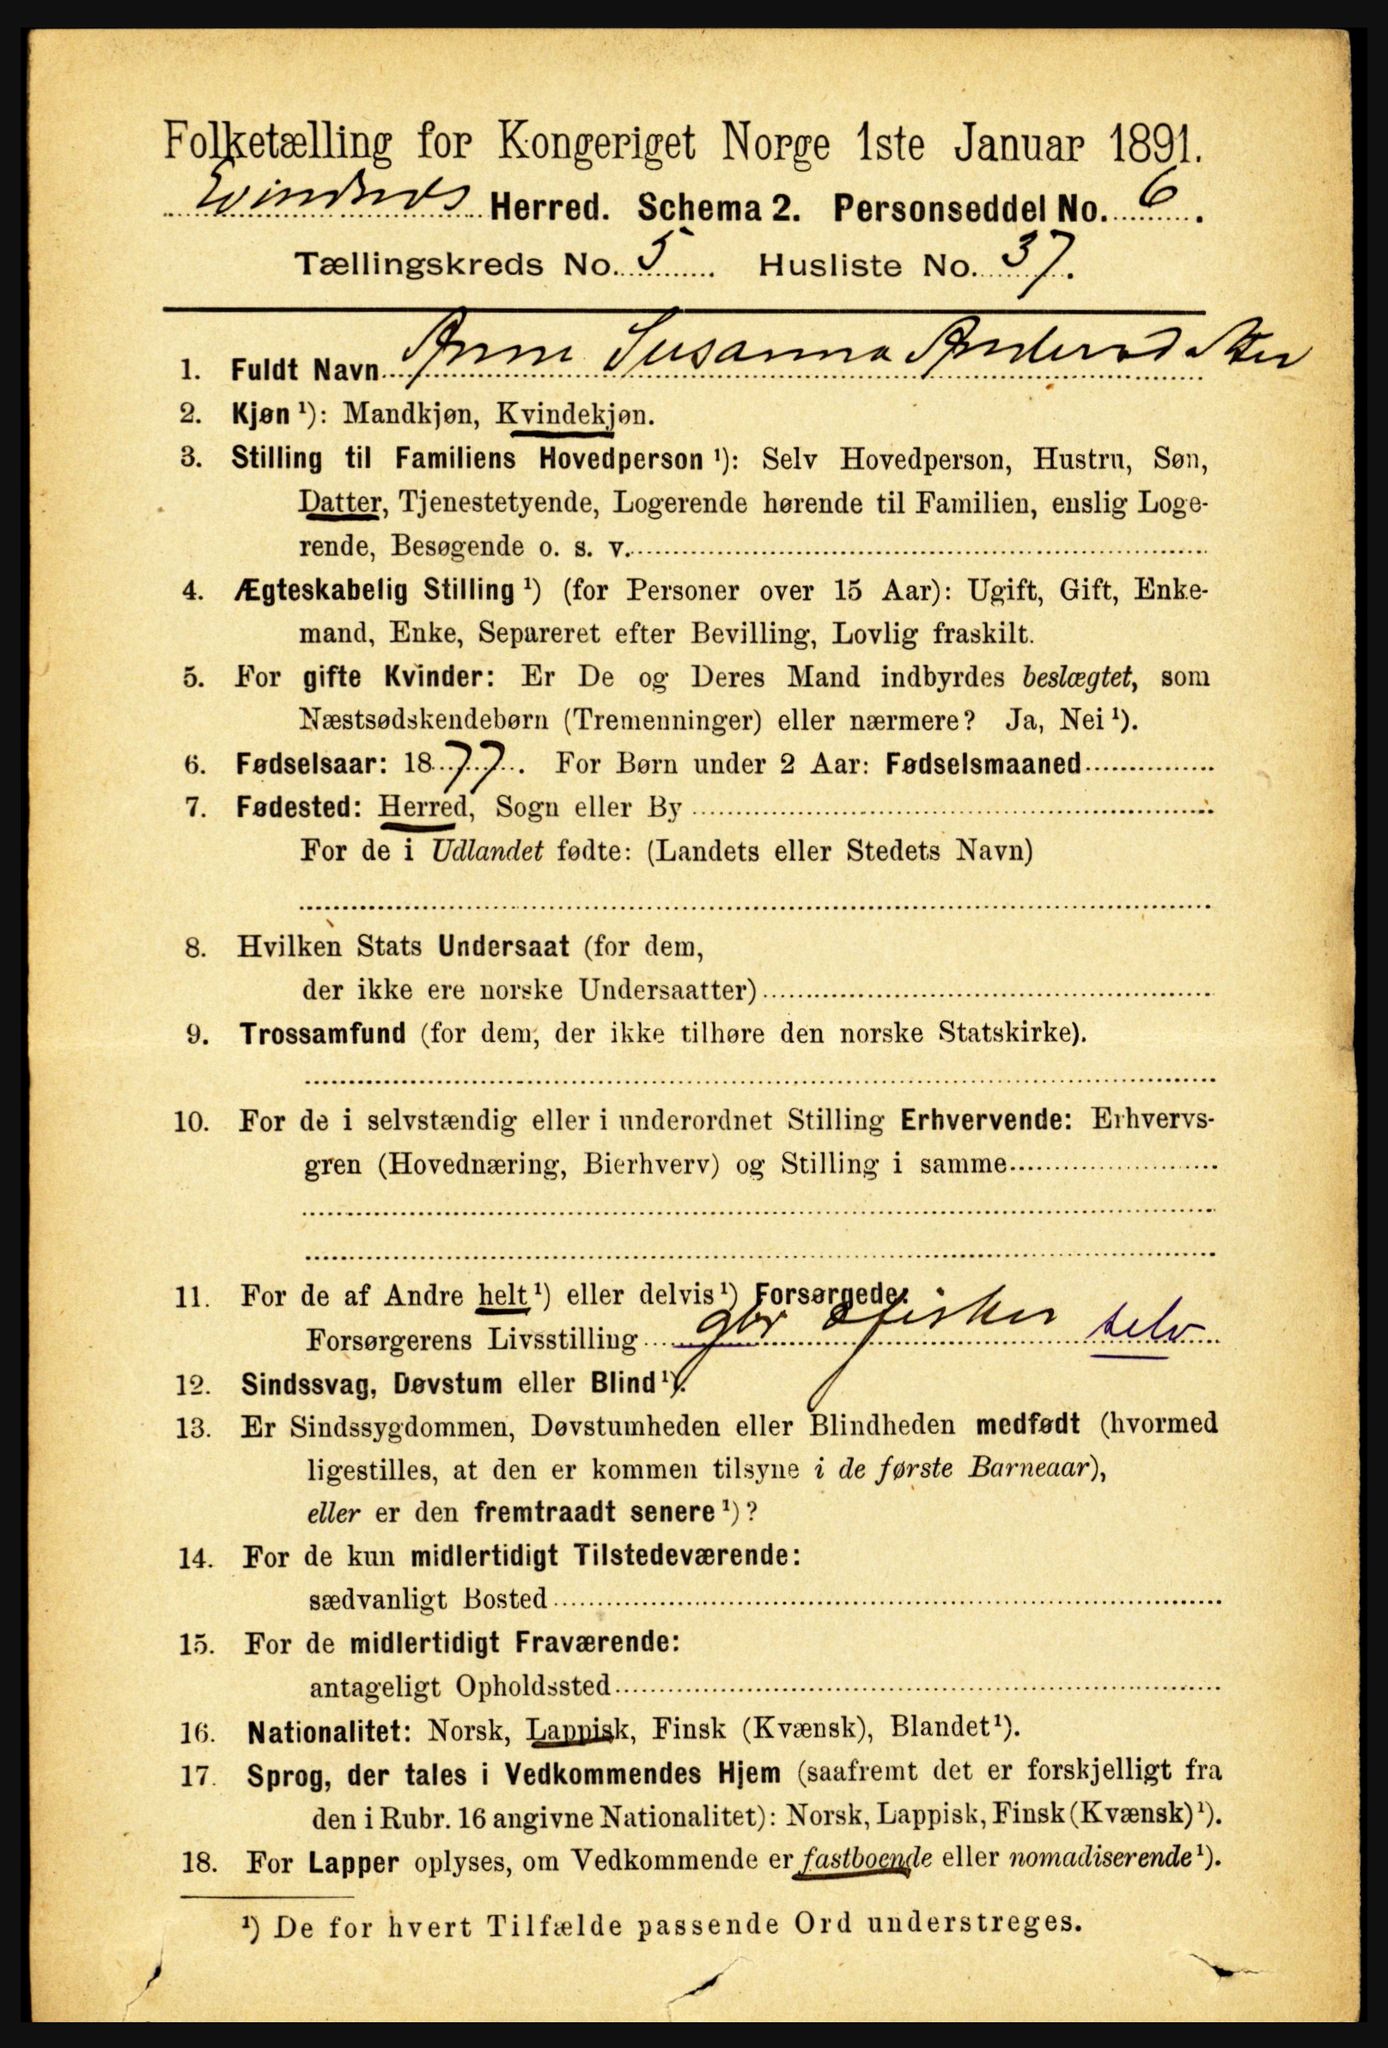 Folketælling for Kongeriget Norge 1ste Januar 1891.
Evindnes Herred. Schema 2. Personseddel No. 6.
Tællingskreds No. 5. Husliste No. 37.
1. Fuldt Navn Anne Susanna Andersdatter
2. Kjøn ¹): Mandkjøn, Kvindekjøn.
3. Stilling til Familiens Hovedperson ¹): Selv Hovedperson, Hustru, Søn,
Datter, Tjenestetyende, Logerende hørende til Familien, enslig Loge-
rende, Besøgende o. s. v.
4. Ægteskabelig Stilling ¹) (for Personer over 15 Aar): Ugift, Gift, Enke-
mand, Enke, Separeret efter Bevilling, Lovlig fraskilt.
5. For gifte Kvinder: Er De og Deres Mand indbyrdes beslægtet, som
Næstsødskendebørn (Tremenninger) eller nærmere? Ja, Nei ¹).
6. Fødselsaar: 1877. For Børn under 2 Aar: Fødselsmaaned
7. Fødested: Herred, Sogn eller By
For de i Udlandet fødte: (Landets eller Stedets Navn)
8. Hvilken Stats Undersaat (for dem,
der ikke ere norske Undersaatter)
9. Trossamfund (for dem, der ikke tilhøre den norske Statskirke).
10. For de i selvstændig eller i underordnet Stilling Erhvervende: Erhvervs-
gren (Hovednæring, Bierhverv) og Stilling i samme
11. For de af Andre helt ¹) eller delvis ¹) Forsørgede:
Forsørgerens Livsstilling gbr fisker selv
12. Sindssvag, Døvstum eller Blind ¹).
13. Er Sindssygdommen, Døvstumheden eller Blindheden medfødt (hvormed
ligestilles, at den er kommen tilsyne i de første Barneaar),
eller er den fremtraadt senere ¹)?
14. For de kun midlertidigt Tilstedeværende:
sædvanligt Bosted
15. For de midlertidigt Fraværende:
antageligt Opholdssted
16. Nationalitet: Norsk, Lappisk, Finsk (Kvænsk), Blandet ¹).
17. Sprog, der tales i Vedkommendes Hjem (saafremt det er forskjelligt fra
den i Rubr. 16 angivne Nationalitet): Norsk, Lappisk, Finsk (Kvænsk) ¹).
18. For Lapper oplyses, om Vedkommende er fastboende eller nomadiserende ¹).
¹) De for hvert Tilfælde passende Ord understreges.